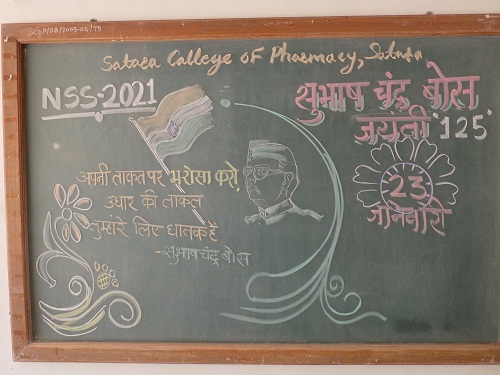 SCOP/GB/2003-04/75
Satara College of Pharmacy, Satara
NSS-2021
सुभाष चंद्र बोस
जयंती '125'
23
जानिवारी
अपनी ताकत पर भरोसा करो,
उधार की ताकत
तुम्हारे लिए घातक है
-सुभाष चंद्र बोस